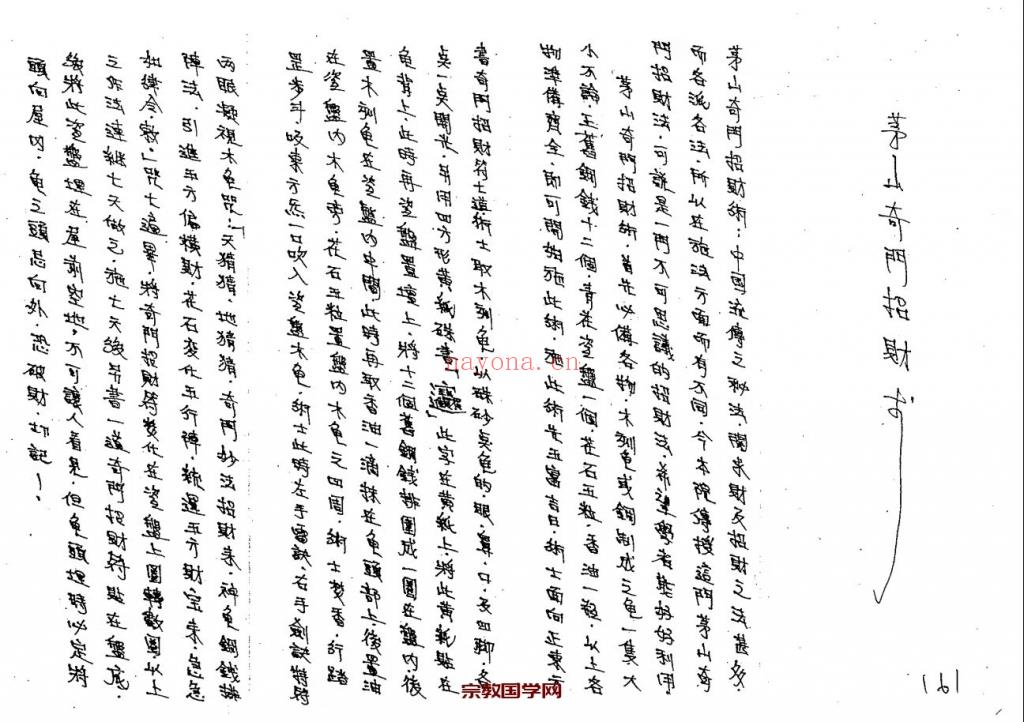 茅山奇門招財術
茅山奇門招財術:中國流傳之秘法,關來財及招財之法甚多,
而各派各法,所以在施法方面而有不同,今本院傳授這門茅山奇
門招財法,可說是一門不可思議的招財法,希望學者能好好利用
茅山奇門招財術,首先必備各物,木刻龜或銅制成之龜一隻大
小不論,五舊銅錢十二個,青花瓷盤一個,花石五粒,香油一碗,以上各
物準備齊全,即可開始施此術,施此術先擇富吉日,術士面向正東方
書奇門招財符七道,術士取木刻龜,以硃砂點龜的,眼,鼻,口,及四腳,各
點一點開光,再用四方形黃紙硃書此字在黃紙上,將此黃紙貼在
龜背上,此時再瓷盤置壇上,將十二個舊銅錢排圍成一圓在盤內,後
置木刻龜在瓷盤內中間,此時再取香油一滴抹在龜頭部上,後置油
在瓷盤內木龜旁,花石五粒置盤內木龜之四周,術士焚香,行踏
罡步斗,吸東方炁一口吹入瓷盤木龜,術士此時左手雷訣,右手劍訣持符
两眼凝視木龜咒:「天猜猜,地猜猜,奇門妙法招財來,神龜銅錢排
陣法,引進五方偏橫財,花石变化五行陣,統運五方財宝來,急急
如律令,敕」咒七遍畢,將奇門招財符焚化在瓷盤上圍轉數圍,以上
之作法連繼七天做之,施七天後再書一道奇門招財符貼在盤底,
後將此瓷盤埋在屋前空地,不可讓人看見,但龜頭埋時必定將
頭向屋内,龜之頭忌向外,恐破財,切記!
161
nayona.cn
宗教国学网